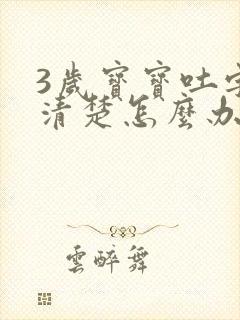 3歲寶寶吐字
清楚怎麼办
雲醉舞